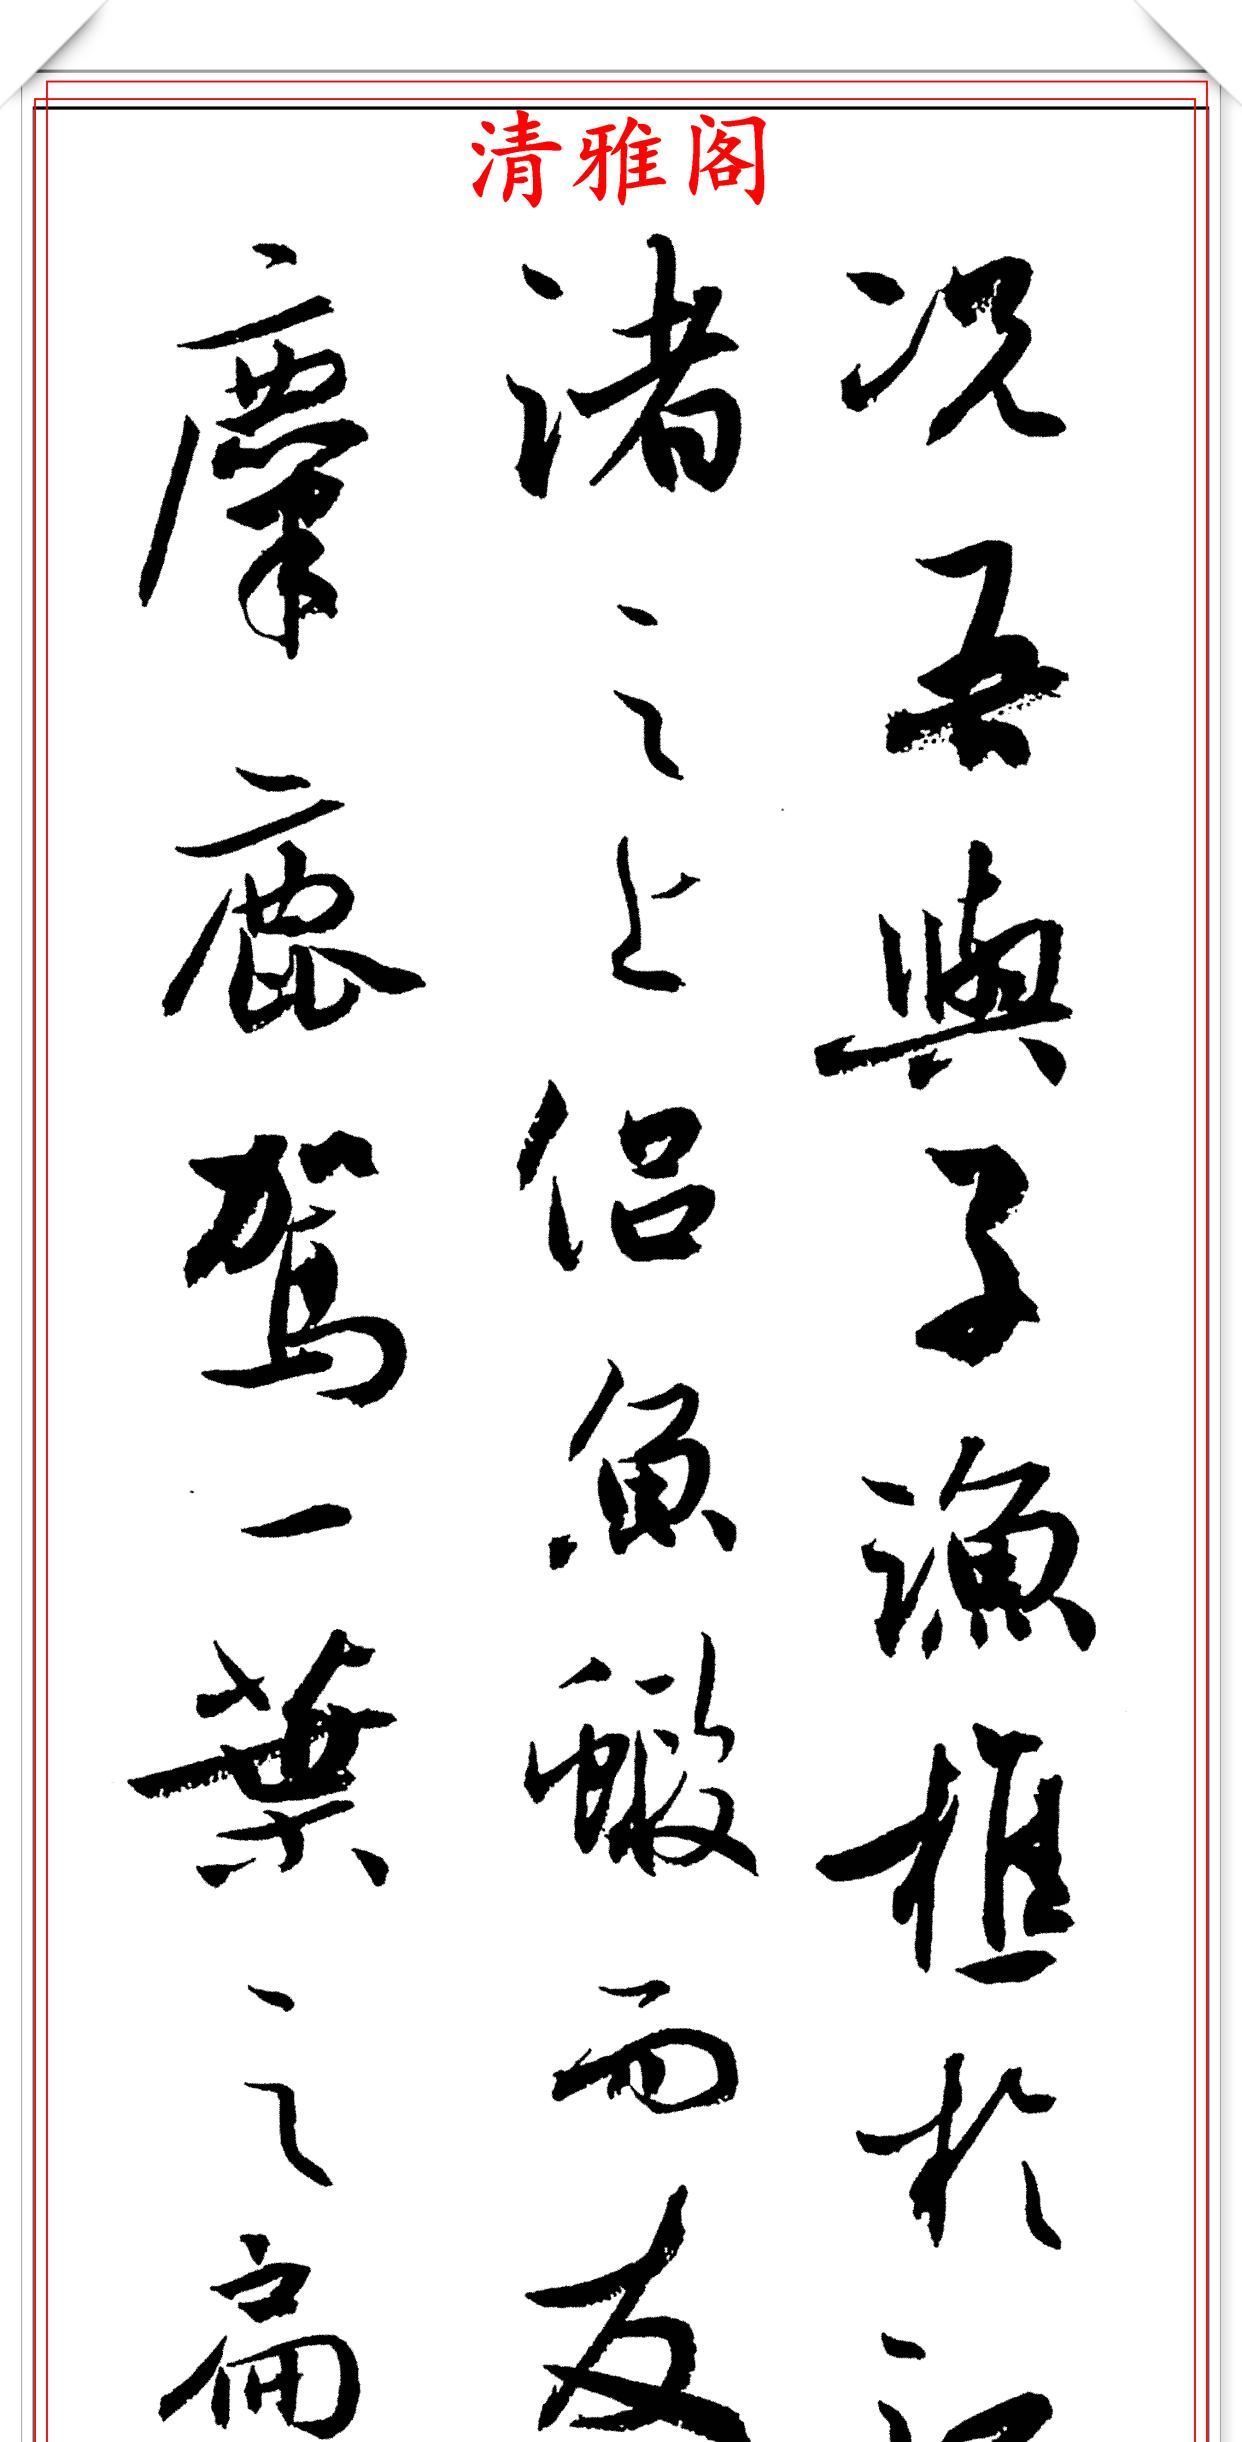 清雅阁
况吾與子漁樵於江
渚之上侣魚蝦而友
麋鹿駕一葉之扁